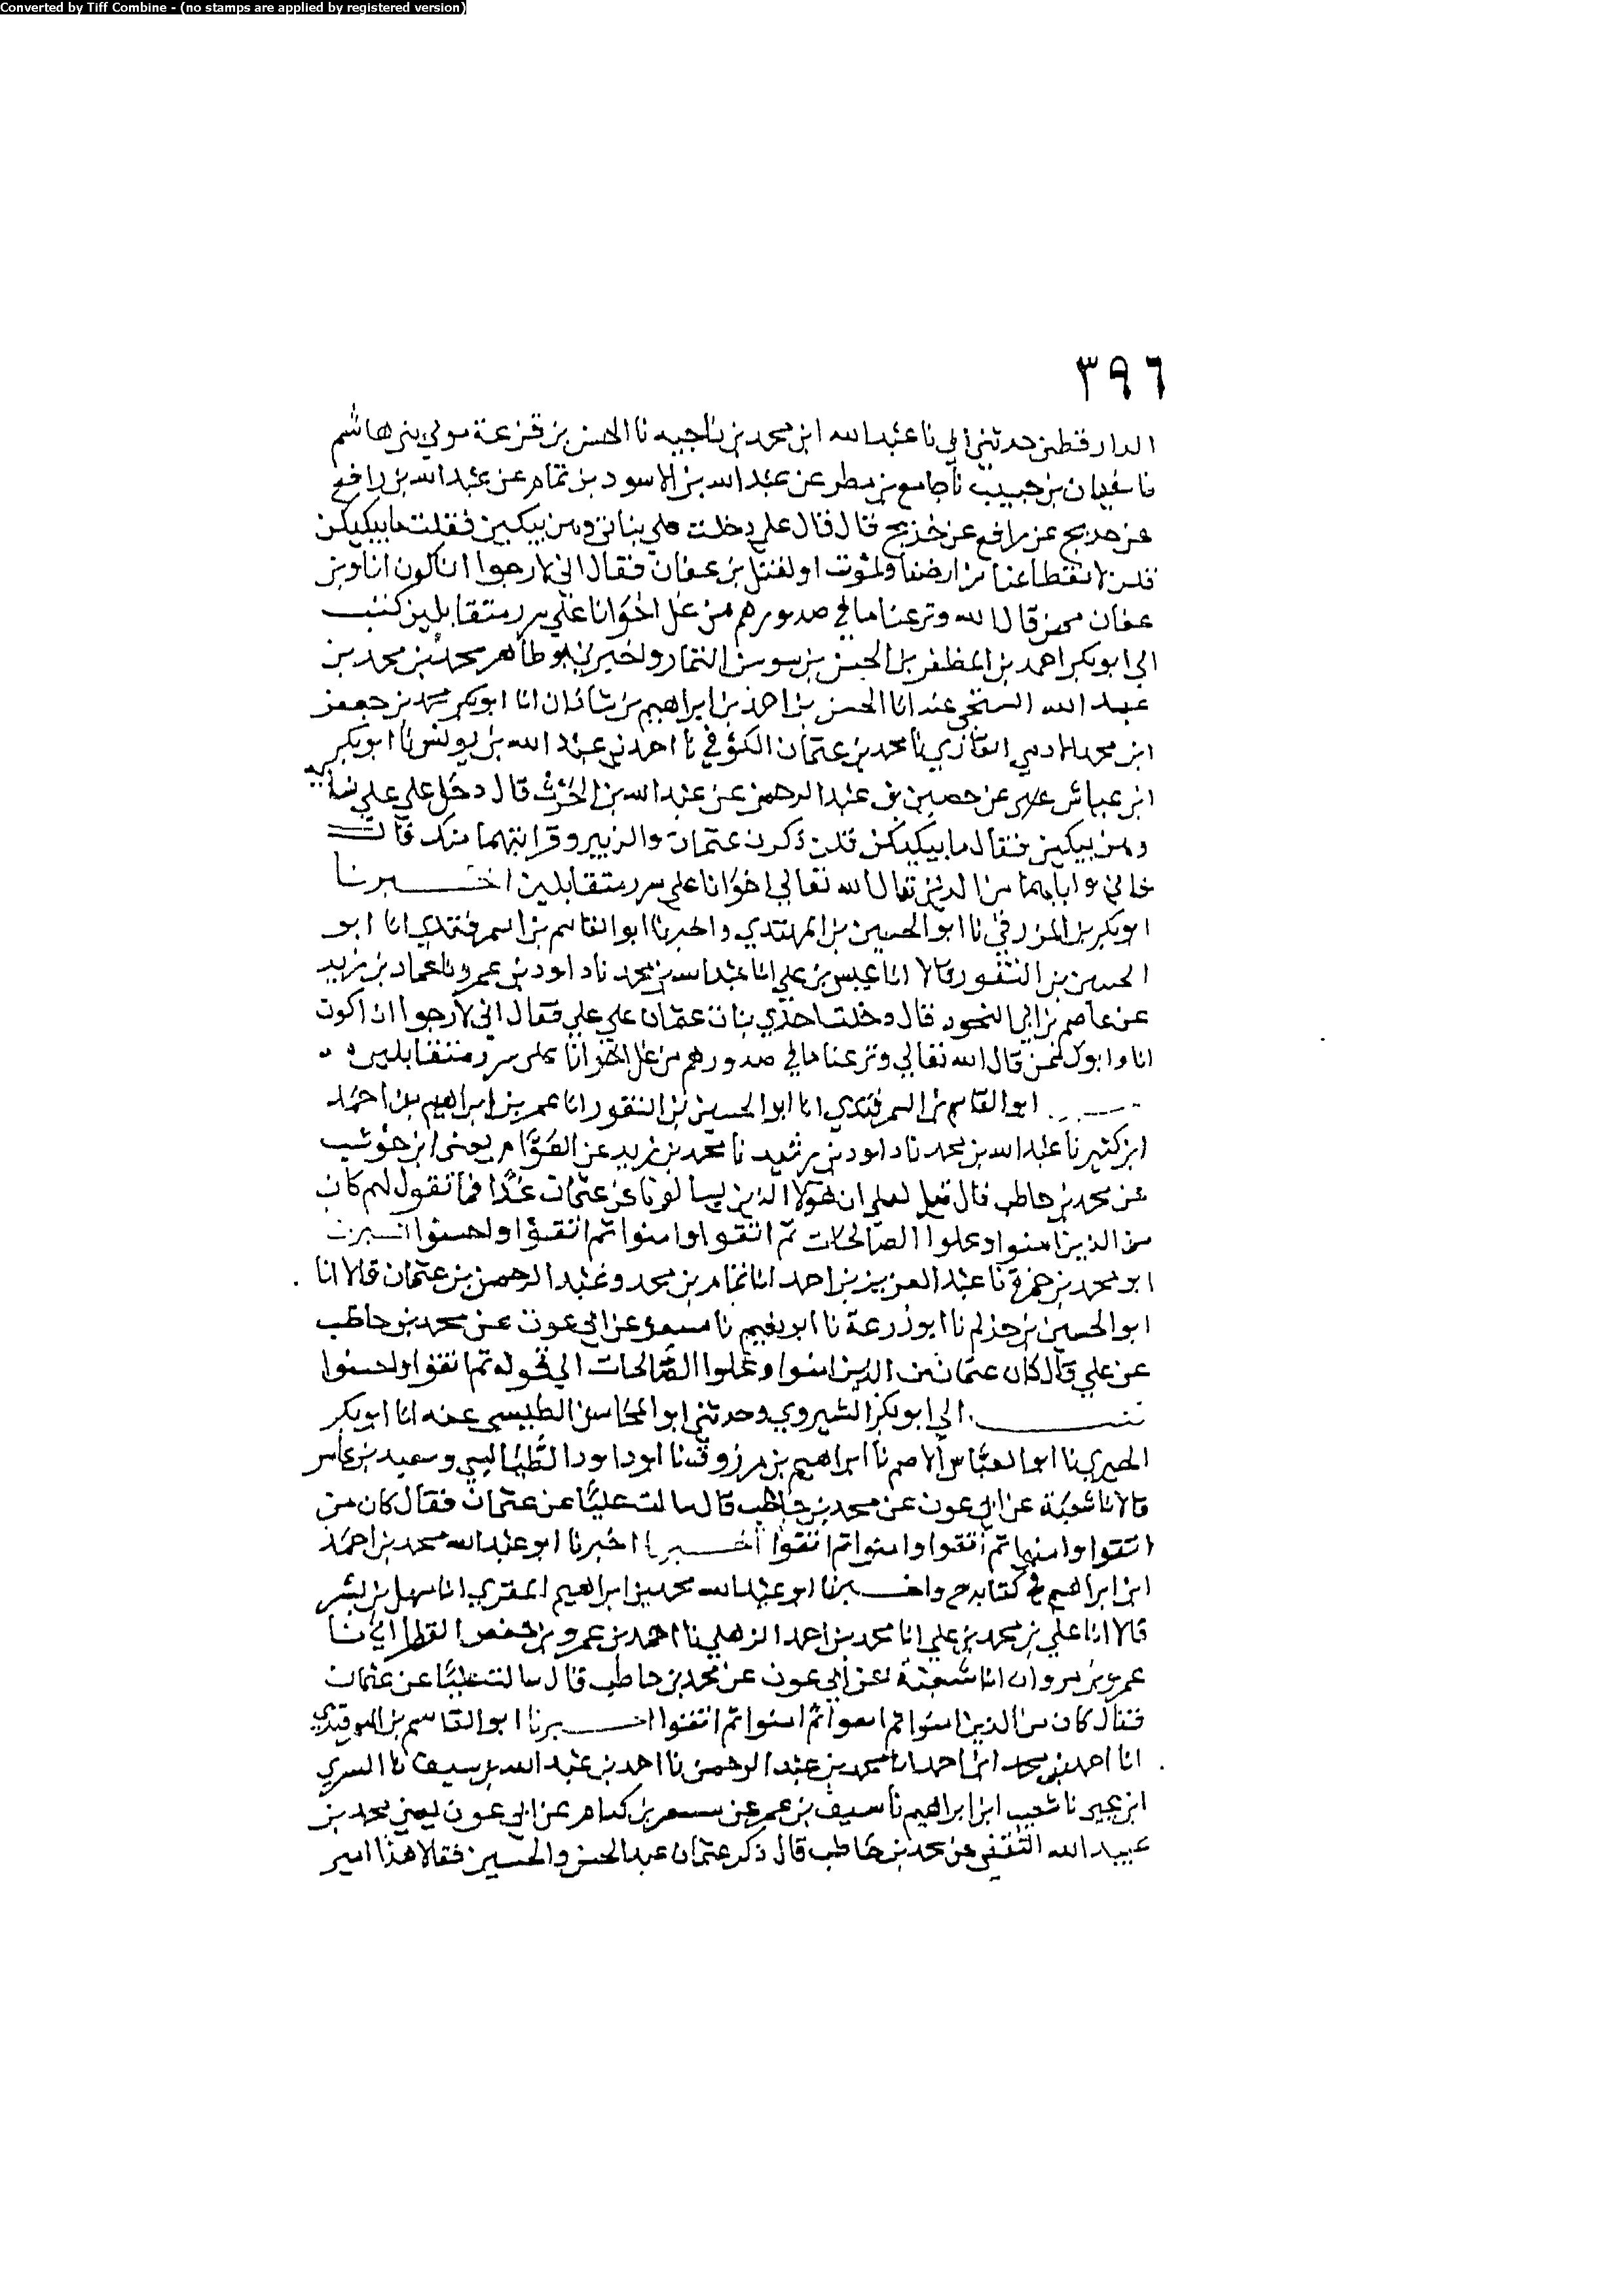 Converted by Tiff Combine - (no stamps are applied by registered version)
٣٩٦
الدارقطني حدثني أبي نا عبد الله ابن محمد بن ناجيه نا الحسن بن قزعة مولي بني هاشم
نا سفيان بن حبيب نا جامع بن مطر عن عبد الله بن الاسود بن تمام عن عبد الله بن رافع
عن خديج عن رافع عن خديج قال قال علي دخلت علي بناتي وهن يبكين فقلت ما يبكيكن
قلن لانقطاعنا من ارضنا ولموت او لقتل بن عفان فقال اني لارجوا ان اكون انا وبن
عفان ممن قال الله ونزعنا ما في صدورهم من غل اخوانا علي سرر متقابلين كتب
الي ابو بكر احمد بن المظفر بن الحسن بن سوسن التمار واخبرني ابو طاهر محمد بن محمد بن
عبد الله السنجي عنه انا الحسن بن احمد بن ابراهيم بن شاذان انا ابو بكر محمد بن جعفر
ابن محمد الادمي القاري نا محمد بن عثمان الكوفي نا احمد بن عبد الله بن يونس نا ابو بكر
ابن عياش عن حصين بن عبد الرحمن عن عبد الله بن الحرث قال دخل علي علي نسائه
وهن يبكين فقال ما يبكيكن قلن ذكرن عثمان والزبير وقرابتهما منك قال
فاني واياهما من الذين قال الله تعالي اخوانا علي سرر متقابلين اخبرنا
ابو بكر بن المزرفي نا ابو الحسين بن المهتدي واخبرنا ابو القاسم بن السمرقندي انا ابو
الحسين بن النقور قالا انا عيسي بن علي انا عبد الله بن محمد نا داود بن عمرو نا حماد بن زيد
عن عاصم بن ابي النجود قال دخلت احدي بنات عثمان علي علي فقال اني لارجوا ان اكون
انا وابوك ممن قال الله تعالي ونزعنا ما في صدورهم من غل اخوانا علي سرر متقابلين
ابو القاسم بن السمرقندي انا ابو الحسين بن النقور انا عمر بن ابراهيم بن احمد
ابن كثير نا عبد الله بن محمد نا داود بن رشيد نا محمد بن يزيد عن العوام يعني ابن حوشب
عن محمد بن حاطب قال قيل لعلي ان هؤلا الذين يسالونا عن عثمان غدا فما نقول لهم كان
من الذين امنوا وعملوا الصالحات ثم اتقوا وامنوا ثم اتقوا واحسنوا
ابو محمد بن حمزة نا عبد العزيز بن احمد انا تمام بن محمد وعبد الرحمن بن عثمان قالا انا
ابو الحسين بن حذلم نا ابو زرعة نا ابو نعيم نا مسعر عن ابي عون عن محمد بن حاطب
عن علي قال كان عثمان من الذين امنوا وعملوا الصالحات الي قوله ثم اتقوا واحسنوا
الي ابو بكر الشيروي وحدثني ابو المحاسن الطبسي عنه انا ابو بكر
الحيري نا ابو العباس الاصم نا ابراهيم بن مرزوق نا ابو داود الطيالسي وسعيد بن عامر
قالا نا شعبة عن ابي عون عن محمد بن حاطب قال سالت عليا عن عثمان فقال كان من
اتقوا وامنوا ثم اتقوا وامنوا ثم اتقوا اخبرنا اخبرنا ابو عبد الله محمد بن احمد
ابن ابراهيم في كتابه ح واخبرنا ابو عبد الله محمد بن ابراهيم المقري انا سهل بن بشر
قالا انا علي بن محمد بن علي انا محمد بن احمد الذهلي نا احمد بن عمرو بن حفص القطراني نا
عمرو بن مروان انا شعبة عن ابي عون عن محمد بن حاطب قال سالت عليا عن عثمان
فقال كان من الذين امنوا ثم اتقوا ثم امنوا ثم اتقوا اخبرنا ابو القاسم بن السمرقندي
انا احمد بن محمد ابن احمد انا محمد بن عبد الرحمن نا احمد بن عبد الله بن سيف نا السري
ابن يحيي نا شعيب ابن ابراهيم نا سيف بن عمر عن مسعر بن كدام عن ابي عون يعني محمد بن
عبيد الله الثقفي عن محمد بن حاطب قال ذكر عثمان عند الحسن والحسين فقالا هذا امير